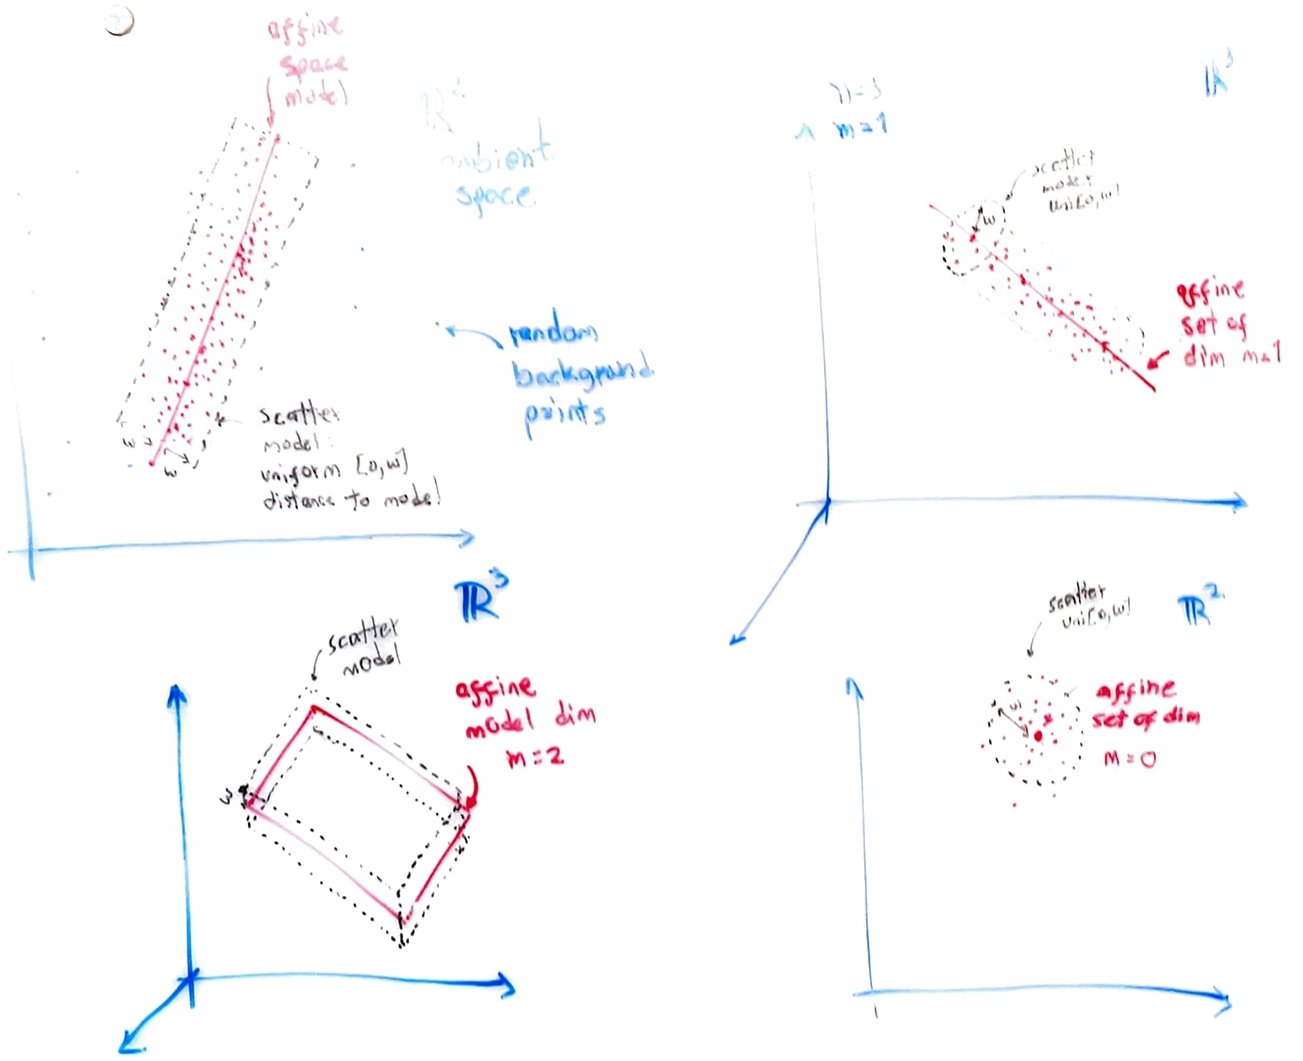 affine
space
model
ambient
space
random
background
points
w
w
scatter
model:
uniform [0,w]
distance to model
m=1
ℝ³
scatter
model
uni[0,w]
w
affine
set of
dim m=1
ℝ³
scatter
model
affine
model dim
m=2
w
scatter
uni[0,w]
ℝ²
w
affine
set of dim
m=0